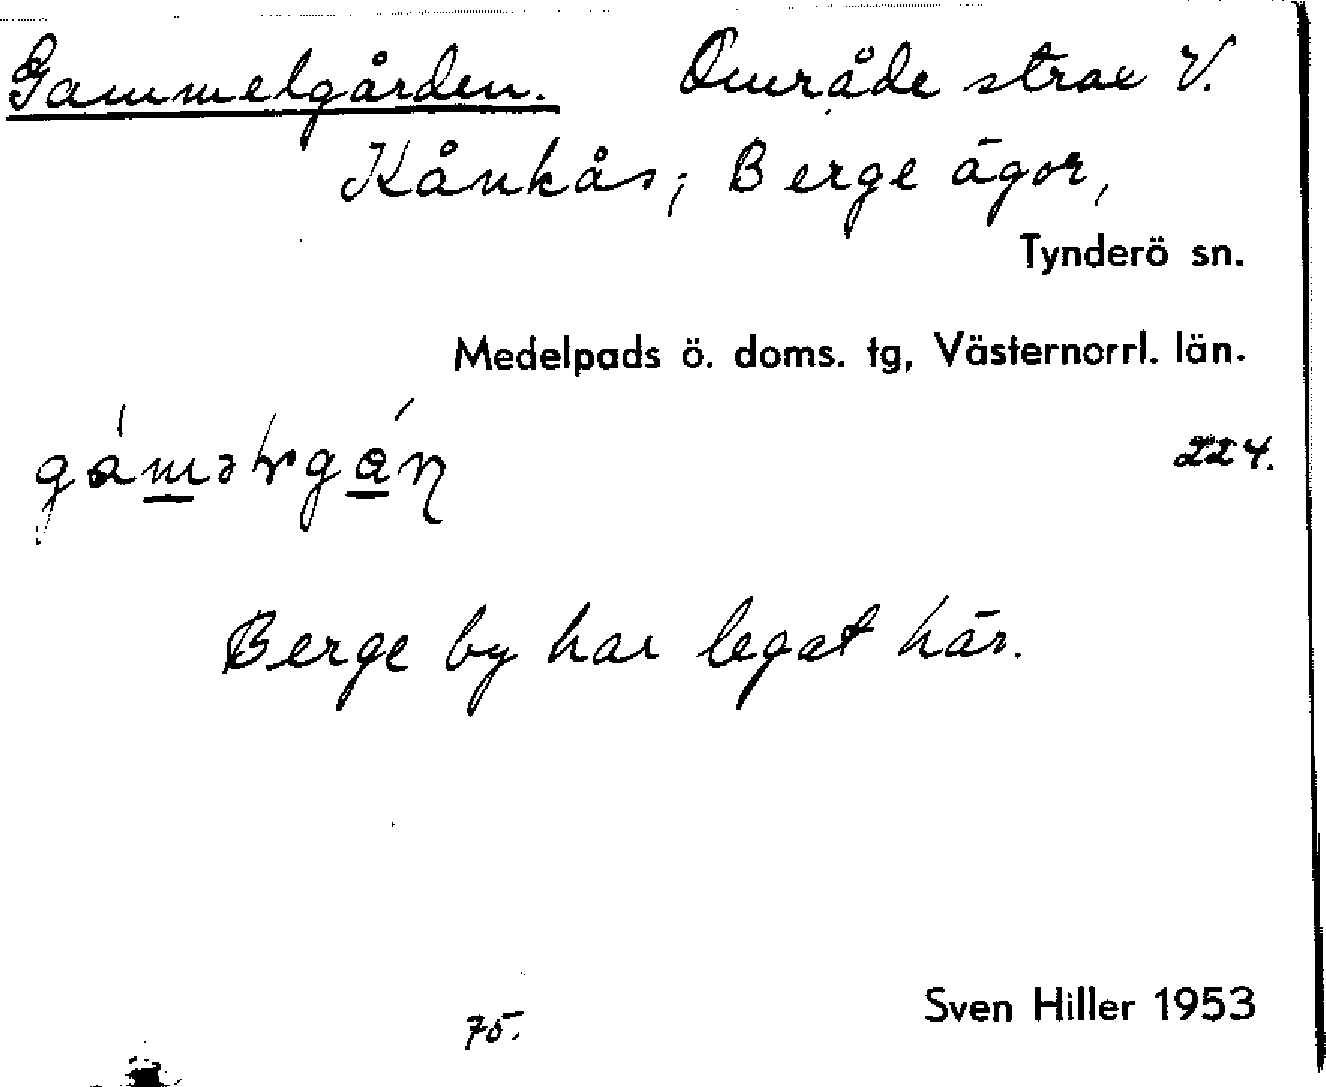 Gammelgården. Område strax V.
Kånkås; Berge ägor,
Tynderö sn.
Medelpads ö. doms. tg, Västernorrl. län.
224.
Berge by har legat här.
Sven Hiller 1953
75.